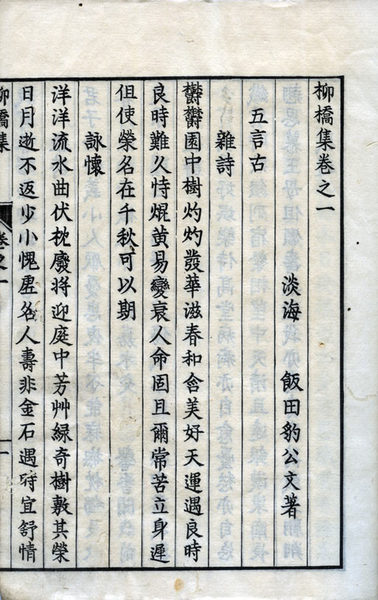 柳橋集卷之一
淡海 飯田豹公文著
五言古
雜詩
鬱鬱園中樹灼灼發華滋春和含美好天運遇良時
良時難久恃焜黄易變衰人命固且爾常苦立身遲
但使榮名在千秋可以期
詠懷
洋洋流水曲伏枕廢將迎庭中芳艸綠奇樹敷其榮
日月逝不返少小愧虚名人壽非金石遇時宜舒情
柳橋集 卷之一 一